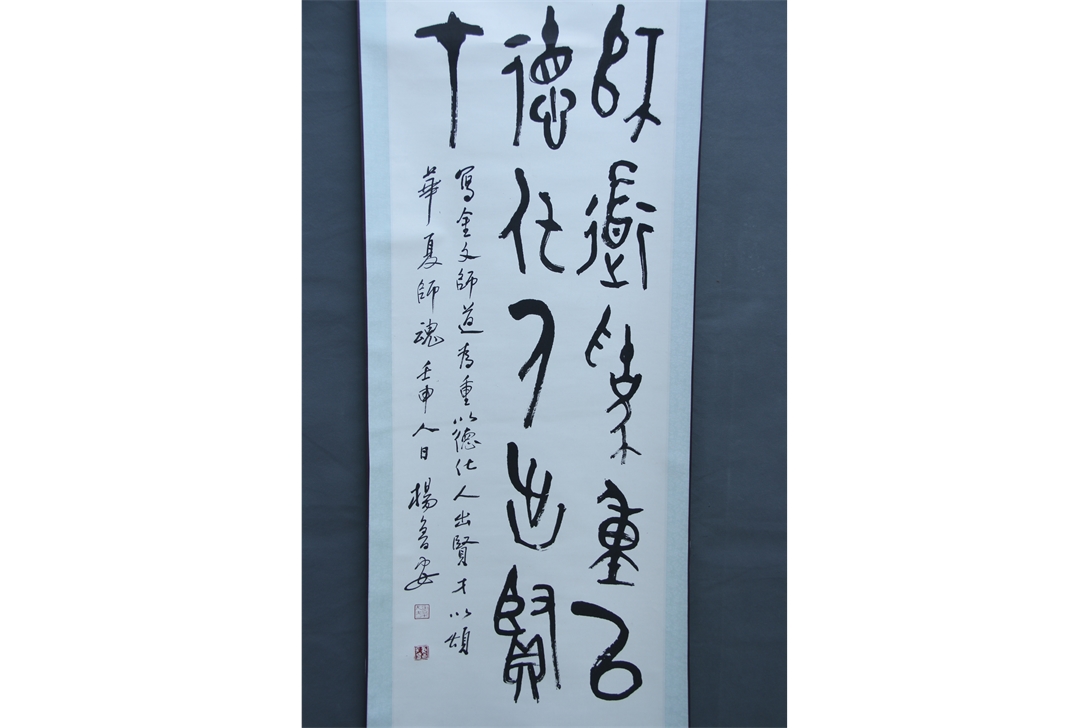 師道為重以
德化人出賢
才
寫金文師道為重以德化人出賢才以頌
華夏師魂壬申人日楊魯安